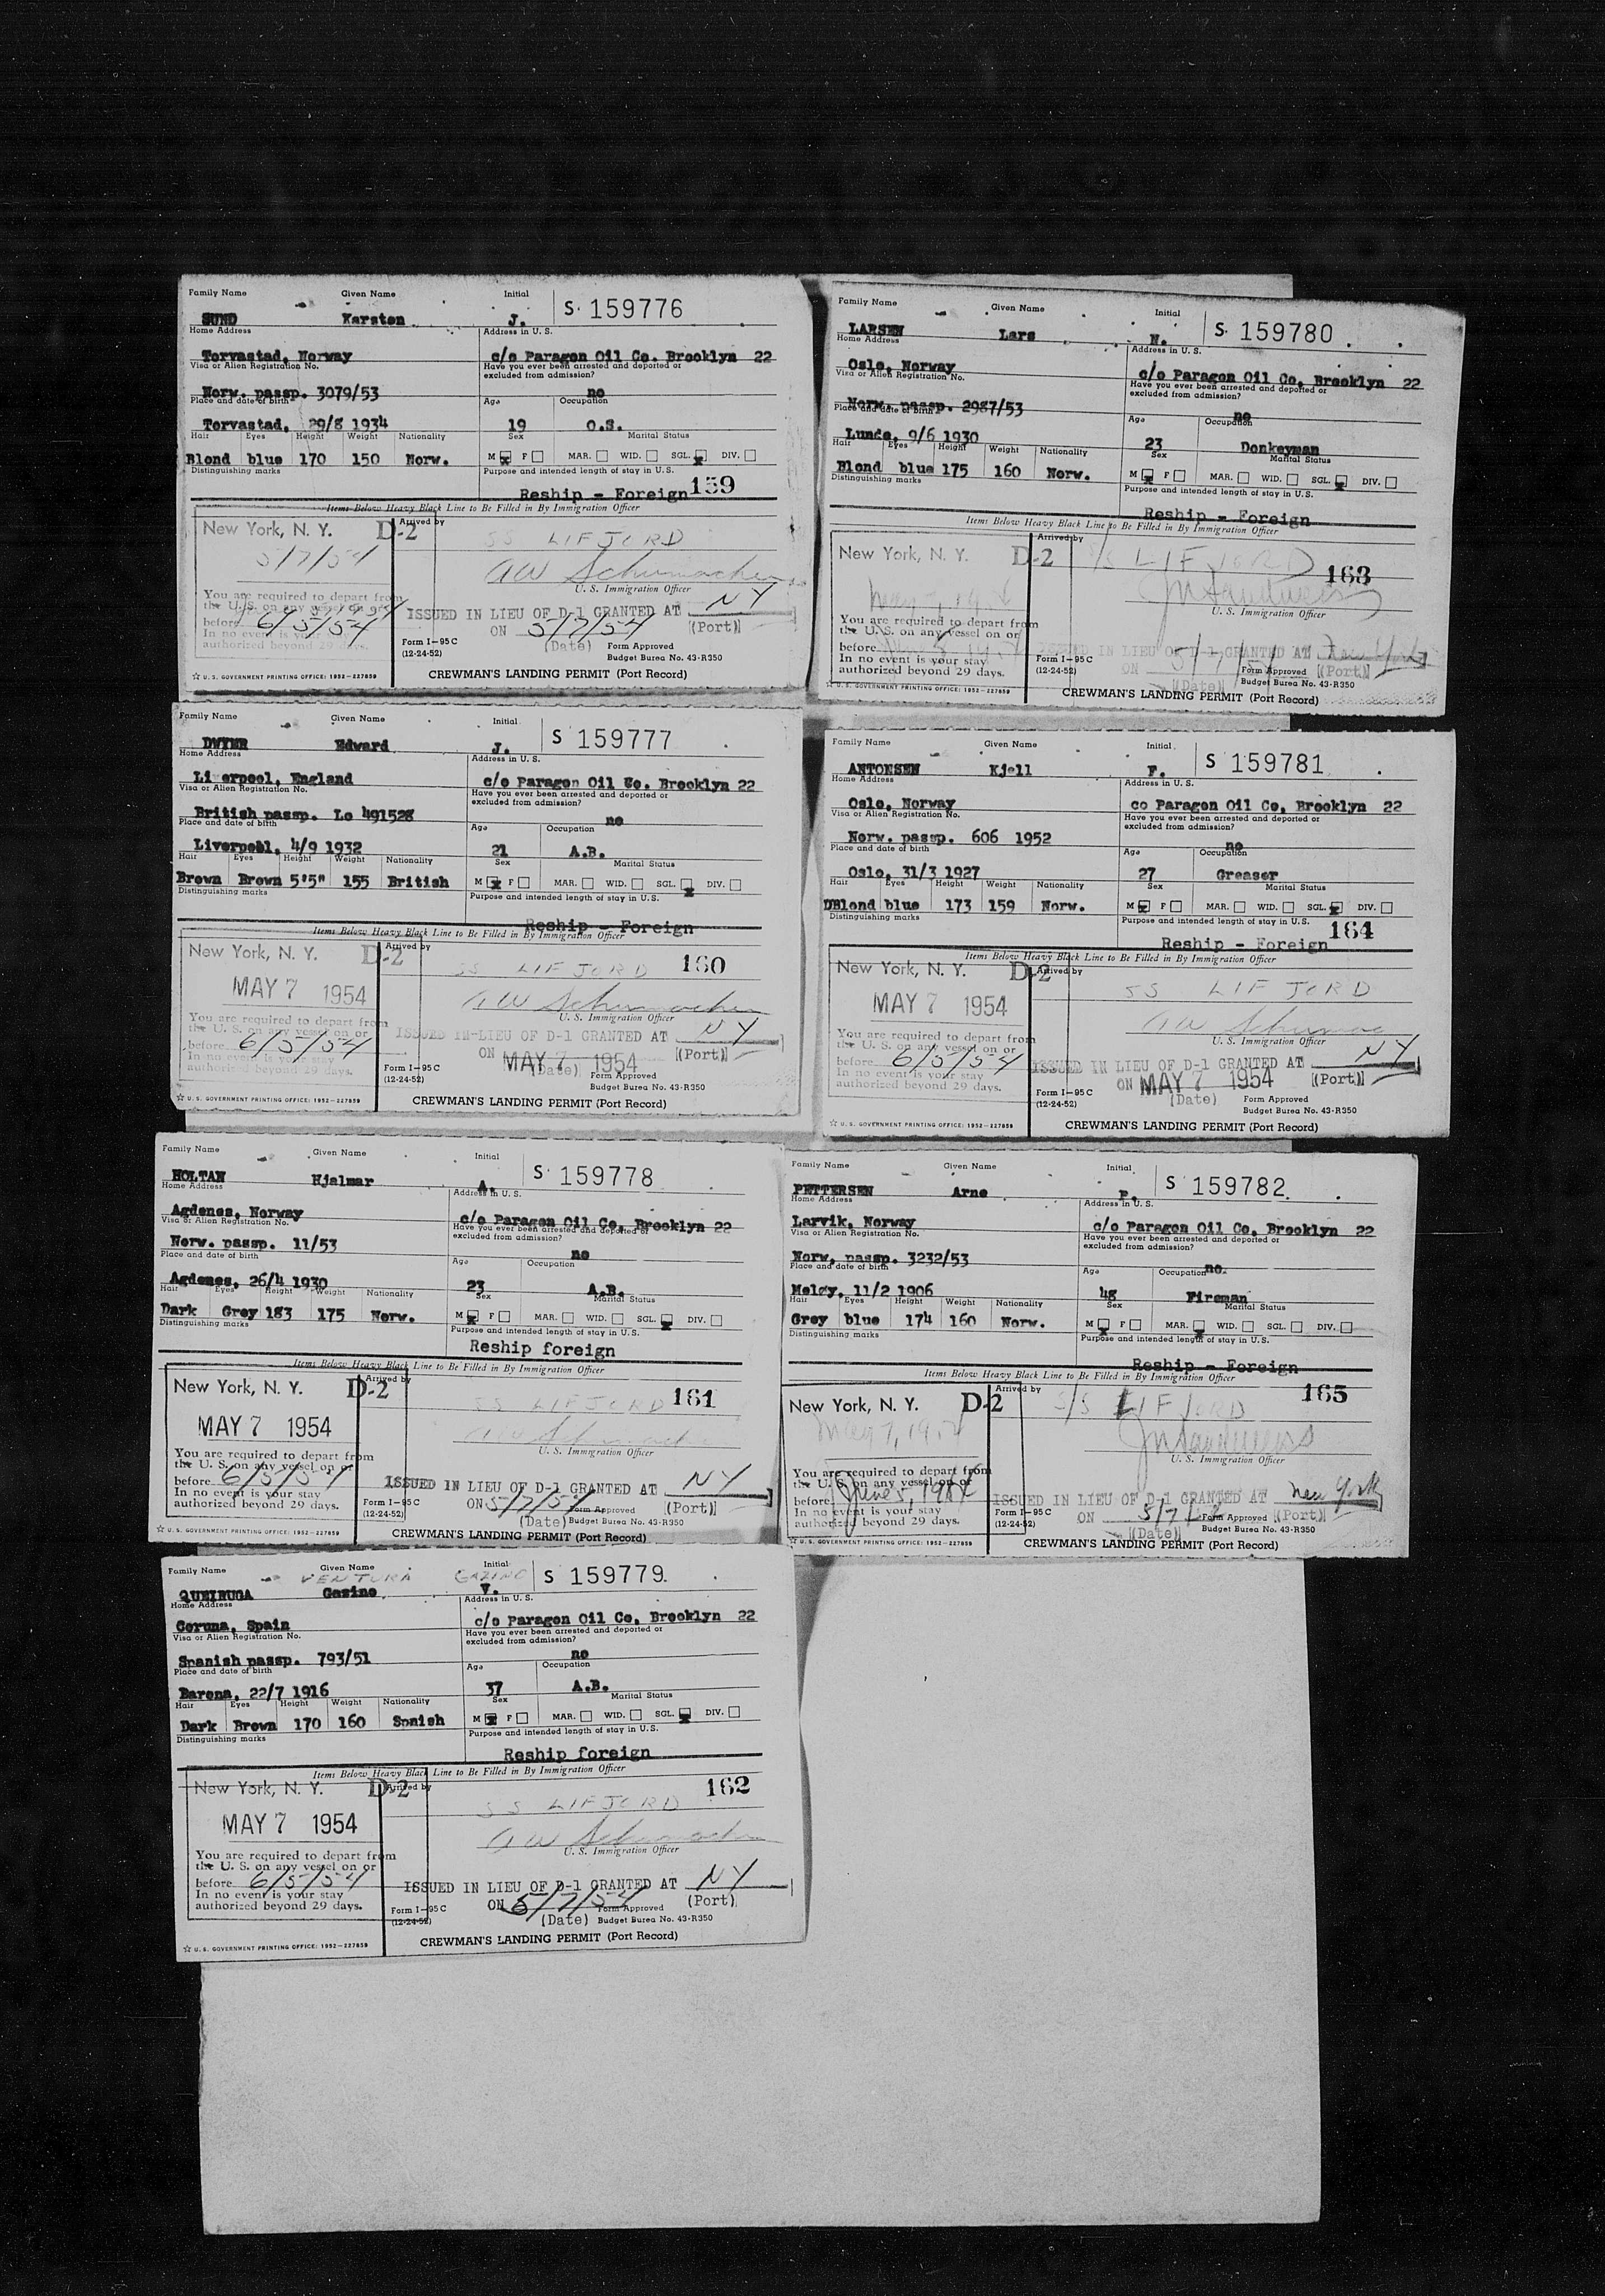 Family Name Given Name Initial S. 159776
SUND Karsten J.
Home Address Address in U. S.
Torvastad, Norway c/o Paragon Oil Co. Brooklyn 22
Visa or Alien Registration No. Have you ever been arrested and deported or
excluded from admission?
Norw. passp. 3079/53 no
Place and date of birth Age Occupation
Torvastad, 29/8 1934 19 O.S.
Hair Eyes Height Weight Nationality Sex Marital Status
Blond blue 170 150 Norw. M F MAR. WID. SGL. DIV.
Distinguishing marks Purpose and intended length of stay in U.S.
Reship - Foreign 159
Items Below Heavy Black Line to Be Filled in By Immigration Officer
New York, N. Y. D-2 Arrived by
5/7/54 SS LIFJORD
AW Schumacher
U. S. Immigration Officer
You are required to depart from
the U. S. on any vessel on or
before 6/5/54
In no event is your stay
authorized beyond 29 days.
ISSUED IN LIEU OF D-1 GRANTED AT NY
ON 5/7/54 (Port)
(Date)
Form I-95C
(12-24-52)
Form Approved
Budget Burea No. 43-R350
☆ U. S. GOVERNMENT PRINTING OFFICE: 1952-227859
CREWMAN'S LANDING PERMIT (Port Record)
Family Name Given Name Initial S 159777
DWYER Edward J.
Home Address Address in U. S.
Li erpool, England c/o Paragon Oil Co. Brooklyn 22
Visa or Alien Registration No. Have you ever been arrested and deported or
excluded from admission?
British passp. Lo 491528 no
Place and date of birth Age Occupation
Liverpool, 4/9 1932 21 A.B.
Hair Eyes Height Weight Nationality Sex Marital Status
Brown Brown 5'5" 155 British M F MAR. WID. SGL. DIV.
Distinguishing marks Purpose and intended length of stay in U.S.
Reship - Foreign
Items Below Heavy Black Line to Be Filled in By Immigration Officer
New York, N. Y. D-2 Arrived by
SS LIFJORD 160
MAY 7 1954
AW Schumacher
U. S. Immigration Officer
You are required to depart from
the U. S. on any vessel on or
before 6/5/54
In no event is your stay
authorized beyond 29 days.
ISSUED IN LIEU OF D-1 GRANTED AT NY
ON MAY 7 1954 (Port)
(Date)
Form I-95C
(12-24-52)
Form Approved
Budget Burea No. 43-R350
☆ U. S. GOVERNMENT PRINTING OFFICE: 1952-227859
CREWMAN'S LANDING PERMIT (Port Record)
Family Name Given Name Initial S. 159778
HOLTAN Hjalmar A.
Home Address Address in U. S.
Agdenes, Norway c/o Paragon Oil Co, Brooklyn 22
Visa or Alien Registration No. Have you ever been arrested and deported or
excluded from admission?
Norw. passp. 11/53 no
Place and date of birth Age Occupation
Agdenes, 26/4 1930 23 A.B.
Hair Eyes Height Weight Nationality Sex Marital Status
Dark Grey 183 175 Norw. M F MAR. WID. SGL. DIV.
Distinguishing marks Purpose and intended length of stay in U.S.
Reship foreign
Items Below Heavy Black Line to Be Filled in By Immigration Officer
New York, N. Y. D-2 Arrived by
SS LIFJORD 161
MAY 7 1954
AW Schumacher
U. S. Immigration Officer
You are required to depart from
the U. S. on any vessel on or
before 6/5/54
In no event is your stay
authorized beyond 29 days.
ISSUED IN LIEU OF D-1 GRANTED AT NY
ON 5/7/54 (Port)
(Date)
Form I-95C
(12-24-52)
Form Approved
Budget Burea No. 43-R350
☆ U. S. GOVERNMENT PRINTING OFFICE: 1952-227859
CREWMAN'S LANDING PERMIT (Port Record)
Family Name Given Name Initial S 159779
VENTURA GAZINO
QUEIRUGA Gazino V.
Home Address Address in U. S.
Coruna, Spain c/o Paragon Oil Co, Brooklyn 22
Visa or Alien Registration No. Have you ever been arrested and deported or
excluded from admission?
Spanish passp. 793/51 no
Place and date of birth Age Occupation
Barona, 22/7 1916 37 A.B.
Hair Eyes Height Weight Nationality Sex Marital Status
Dark Brown 170 160 Spnish M F MAR. WID. SGL. DIV.
Distinguishing marks Purpose and intended length of stay in U.S.
Reship foreign
Items Below Heavy Black Line to Be Filled in By Immigration Officer
New York, N. Y. D-2 Arrived by
SS LIFJORD 162
MAY 7 1954
AW Schumacher
U. S. Immigration Officer
You are required to depart from
the U. S. on any vessel on or
before 6/5/54
In no event is your stay
authorized beyond 29 days.
ISSUED IN LIEU OF D-1 GRANTED AT NY
ON 5/7/54 (Port)
(Date)
Form I-95C
(12-24-52)
Form Approved
Budget Burea No. 43-R350
☆ U. S. GOVERNMENT PRINTING OFFICE: 1952-227859
CREWMAN'S LANDING PERMIT (Port Record)
Family Name Given Name Initial S. 159780
LARSEN Lars N.
Home Address Address in U. S.
Oslo, Norway c/o Paragon Oil Co, Brooklyn 22
Visa or Alien Registration No. Have you ever been arrested and deported or
excluded from admission?
Norw. passp. 2987/53 no
Place and date of birth Age Occupation
Lunde, 9/6 1930 23 Donkeyman
Hair Eyes Height Weight Nationality Sex Marital Status
Blond blue 175 160 Norw. M F MAR. WID. SGL. DIV.
Distinguishing marks Purpose and intended length of stay in U.S.
Reship - Foreign
Items Below Heavy Black Line to Be Filled in By Immigration Officer
New York, N. Y. D-2 Arrived by
S/S LIFJORD 163
May 7, 195
U. S. Immigration Officer
You are required to depart from
the U. S. on any vessel on or
before
In no event is your stay
authorized beyond 29 days.
ISSUED IN LIEU OF D-1 GRANTED AT New York
ON 5/7/54 (Port)
(Date)
Form I-95C
(12-24-52)
Form Approved
Budget Burea No. 43-R350
☆ U. S. GOVERNMENT PRINTING OFFICE: 1952-227859
CREWMAN'S LANDING PERMIT (Port Record)
Family Name Given Name Initial S 159781
ANTONSEN Kjell F.
Home Address Address in U. S.
Oslo, Norway co Paragon Oil Co, Brooklyn 22
Visa or Alien Registration No. Have you ever been arrested and deported or
excluded from admission?
Norw. passp. 606 1952 no
Place and date of birth Age Occupation
Oslo, 31/3 1927 27 Greaser
Hair Eyes Height Weight Nationality Sex Marital Status
DBlond blue 173 159 Norw. M F MAR. WID. SGL. DIV.
Distinguishing marks Purpose and intended length of stay in U.S.
Reship - Foreign 164
Items Below Heavy Black Line to Be Filled in By Immigration Officer
New York, N. Y. D-2 Arrived by
SS LIFJORD
MAY 7 1954
AW Schumac
U. S. Immigration Officer
You are required to depart from
the U. S. on any vessel on or
before 6/5/54
In no event is your stay
authorized beyond 29 days.
ISSUED IN LIEU OF D-1 GRANTED AT NY
ON MAY 7 1954 (Port)
(Date)
Form I-95C
(12-24-52)
Form Approved
Budget Burea No. 43-R350
☆ U. S. GOVERNMENT PRINTING OFFICE: 1952-227859
CREWMAN'S LANDING PERMIT (Port Record)
Family Name Given Name Initial S 159782
PETTERSEN Arne P.
Home Address Address in U. S.
Larvik, Norway c/o Paragon Oil Co, Brooklyn 22
Visa or Alien Registration No. Have you ever been arrested and deported or
excluded from admission?
Norw, passp. 3232/53 no.
Place and date of birth Age Occupation
Meløy, 11/2 1906 48 Fireman
Hair Eyes Height Weight Nationality Sex Marital Status
Grey blue 174 160 Norw. M F MAR. WID. SGL. DIV.
Distinguishing marks Purpose and intended length of stay in U.S.
Reship - Foreign
Items Below Heavy Black Line to Be Filled in By Immigration Officer
New York, N. Y. D-2 Arrived by
S/S LIFJORD 165
May 7, 1954
U. S. Immigration Officer
You are required to depart from
the U. S. on any vessel on or
before June 5, 1954
In no event is your stay
authorized beyond 29 days.
ISSUED IN LIEU OF D-1 GRANTED AT New York
ON 5/7/ (Port)
(Date)
Form I-95C
(12-24-52)
Form Approved
Budget Burea No. 43-R350
☆ U. S. GOVERNMENT PRINTING OFFICE: 1952-227859
CREWMAN'S LANDING PERMIT (Port Record)